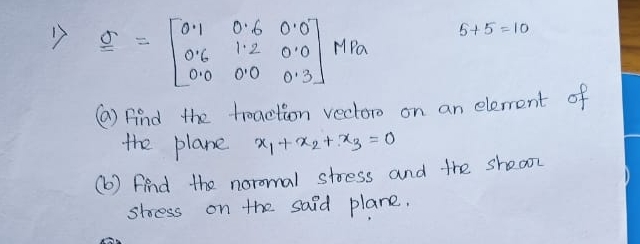 1) σ = [0.1 0.6 0.0] 5+5=10
[0.6 1.2 0.0] MPa
[0.0 0.0 0.3]
(a) Find the traction vectors on an element of
the plane x₁+x₂+x₃ = 0
(b) Find the normal stress and the shear
stress on the said plane.